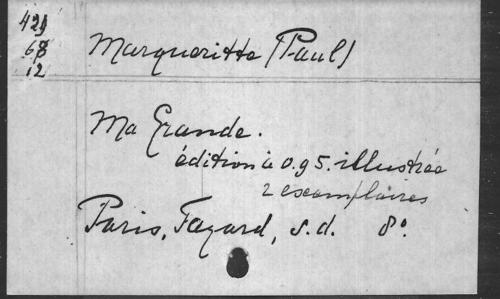 429
68
12
Margueritte (Paul)
Ma Grande.
édition à 0.95. illustrée
2 exemplaires
Paris, Fayard, s.d. 8º.